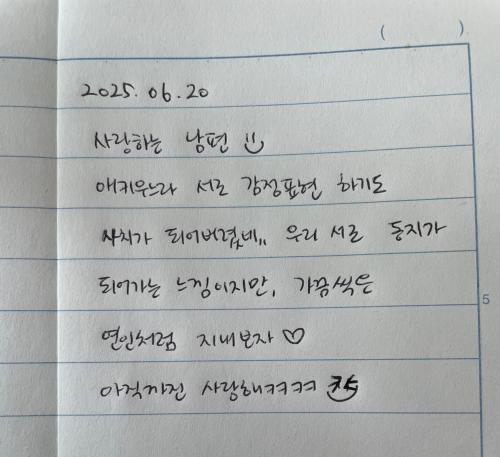 (          )
2025. 06. 20
사랑하는 남편
애키우느라 서로 감정표현 하기도
사치가 되어버렸네,, 우리 서로 동지가
되어가는 느낌이지만, 가끔씩은
연인처럼 지내보자 ♡
아직까진 사랑해ㅋㅋㅋㅋ
5